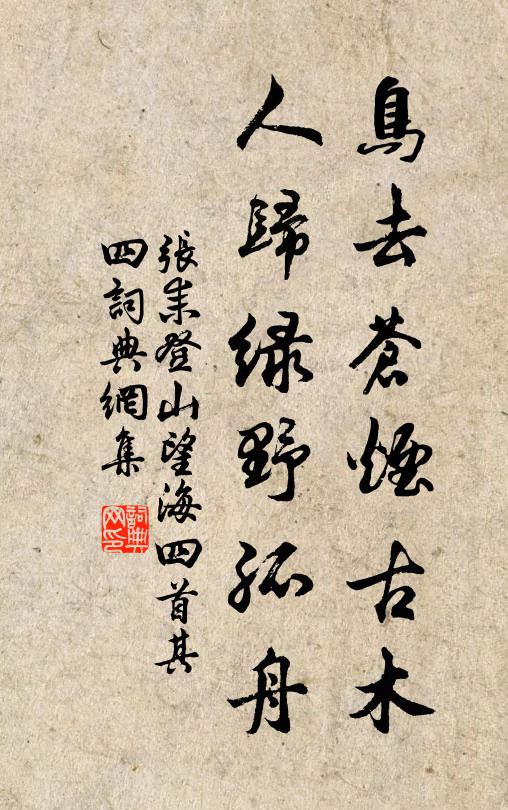 鳥去蒼煙古木
人歸綠野孤舟
張耒登山望海四首其
四詞典網集
詞典
网印